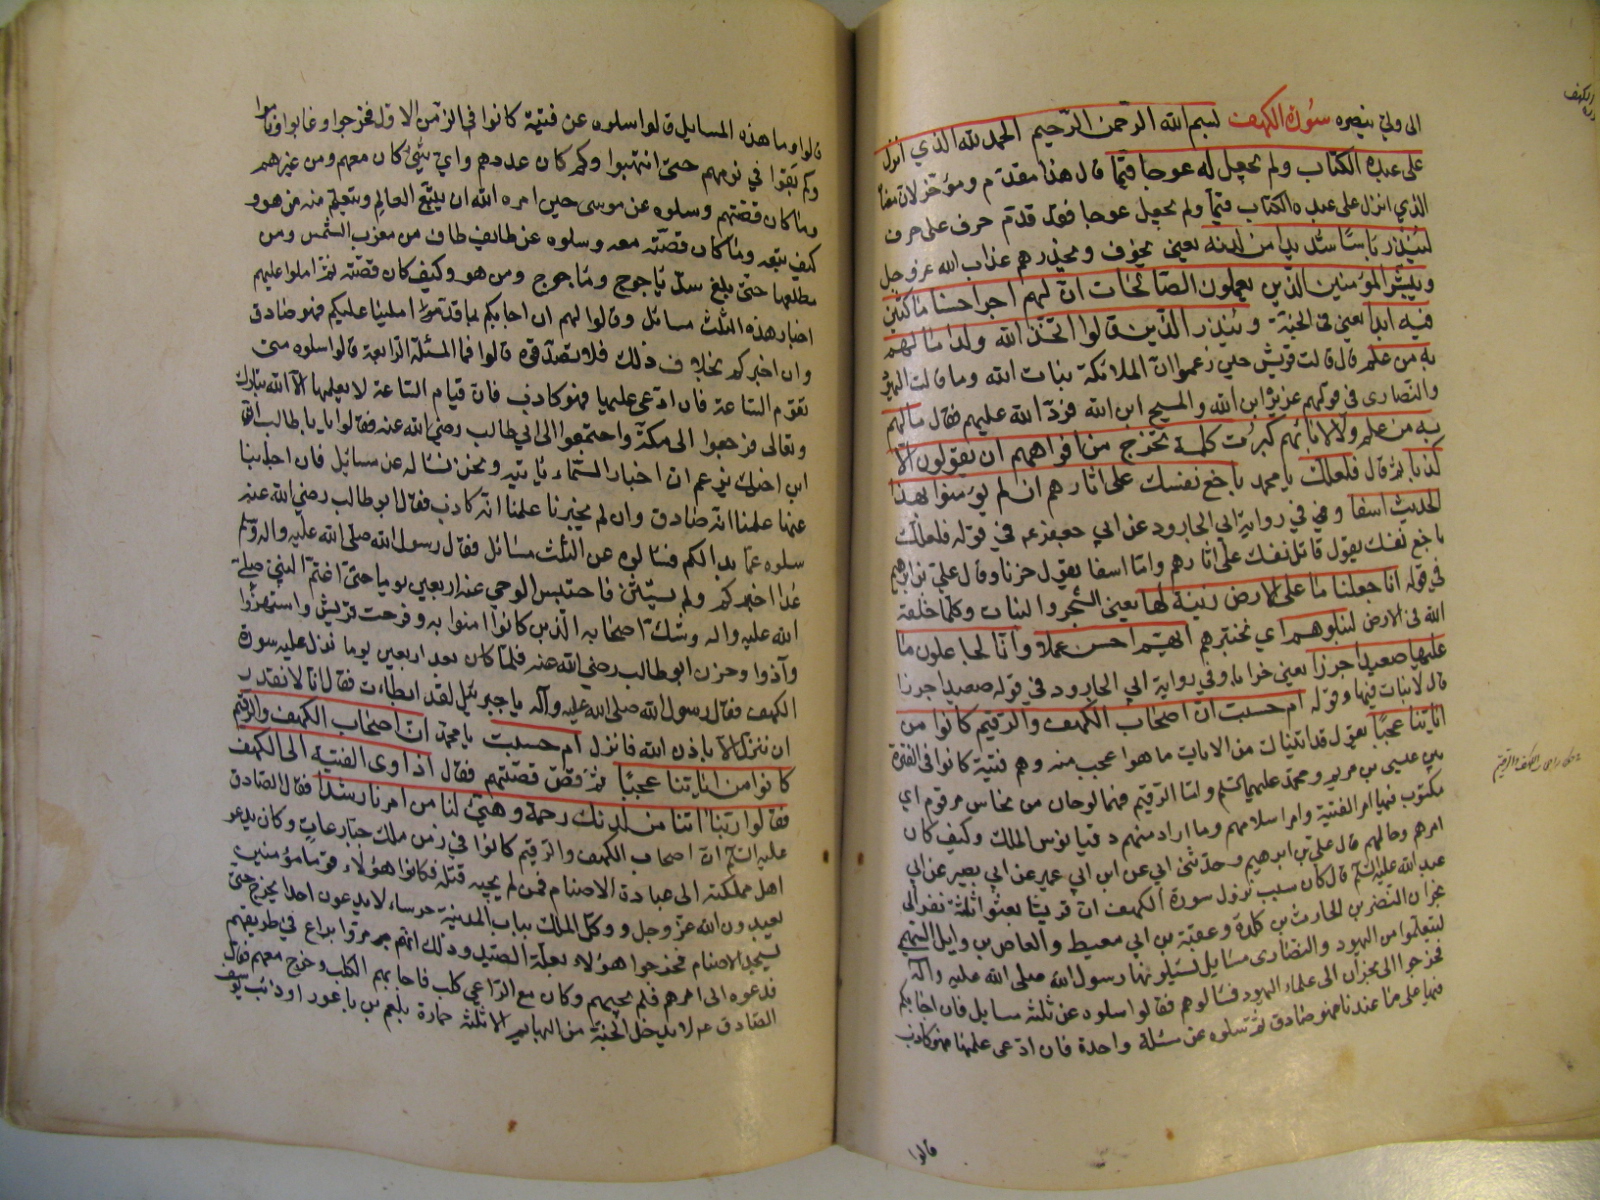 الى ولي ينصره سورة الكهف بسم الله الرحمن الرحيم الحمد لله الذي انزل
على عبده الكتاب ولم يجعل له عوجا قيما قال هذا مقدم ومؤخر لان معناه
الذي انزل على عبده الكتاب قيما ولم يجعل عوجا فقد قدم حرف على حرف
لينذر باسا شديدا من لدنه يعني يخوف ويحذرهم عذاب الله عز وجل
ويبشر المؤمنين الذين يعملون الصالحات ان لهم اجرا حسنا ماكثين
فيه ابدا يعني في الجنة وينذر الذين قالوا اتخذ الله ولدا ما لهم
به من علم قال قالت قريش حين زعموا ان الملائكة بنات الله وما قالت اليهود
والنصارى في قولهم عزير ابن الله والمسيح ابن الله فرد الله عليهم فقال ما لهم
به من علم ولا لابائهم كبرت كلمة تخرج من افواههم ان يقولون الا
كذبا ثم قال فلعلك يا محمد باخع نفسك على اثارهم ان لم يؤمنوا بهذا
الحديث اسفا وفي رواية ابي الجارود عن ابي جعفر ع في قوله فلعلك
باخع نفسك يقول قاتل نفسك على اثارهم واما اسفا يقول حزنا وقال علي بن ابراهيم
في قوله انا جعلنا ما على الارض زينة لها يعني الشجر والنبات وكلما خلقه
الله في الارض لنبلوهم اي نختبرهم ايهم احسن عملا وانا لجاعلون ما
عليها صعيدا جرزا يعني خرابا وفي رواية ابي الجارود في قوله صعيدا جرزا
قال لا نبات فيها وقوله ام حسبت ان اصحاب الكهف والرقيم كانوا من
اياتنا عجبا يقول قد اتيناك من الايات ما هو اعجب منه وهم فتية كانوا في الفترة
بين عيسى بن مريم ومحمد عليهما السلم واما الرقيم فهما لوحان من نحاس مرقوم اي
مكتوب فيهما امر الفتية وامر اسلامهم وما اراد منهم دقيانوس الملك وكيف كان
امرهم وحالهم قال علي بن ابرهيم وحدثني ابي عن ابن ابي عمير عن ابي بصير عن ابي
عبد الله عليه السلم قال كان سبب نزول سورة الكهف ان قريشا بعثوا ثلثة نفر الى
نجران النضر بن الحارث بن كلدة وعقبة بن ابي معيط والعاص بن وايل السهمي
ليتعلموا من اليهود والنصارى مسايل يسئلونها رسول الله صلى الله عليه واله
فخرجوا الى نجران الى علماء اليهود فسالوهم فقالوا سلوه عن ثلثة مسايل فان اجابكم
فيها على ما عندنا فهو صادق ثم سلوه عن مسئلة واحدة فان ادعى علمها فهو كاذب
قالوا
قالوا وما هذه المسايل قالوا سلوه عن فتية كانوا في الزمن الاول فخرجوا وغابوا وناموا
وكم بقوا في نومهم حتى انتبهوا وكم كان عددهم واي شئ كان معهم ومن غيرهم
وما كان قصتهم وسلوه عن موسى حين امره الله ان يتبع العالم ويتعلم منه من هو و
كيف تبعه وما كان قصته معه وسلوه عن طايف طاف من مغرب الشمس ومن
مطلعها حتى بلغ سد ياجوج وماجوج ومن هو وكيف كان قصته ثم املوا عليهم
اخبار هذه الثلث مسائل وقالوا لهم ان اجابكم بما قد املينا عليكم فهو صادق
وان اخبركم بخلاف ذلك فلا تصدقوه قالوا فما المسئلة الرابعة قالوا سلوه متى
تقوم الساعة فان ادعى علمها فهو كاذب فان قيام الساعة لا يعلمها الا الله تبارك
وتعالى فرجعوا الى مكة واجتمعوا الى ابي طالب رضي الله عنه فقالوا يا با طالب ان
ابن اخيك يزعم ان اخبار السماء ياتيه ونحن نساله عن مسايل فان اجابنا
عنها علمنا انه صادق وان لم يخبرنا علمنا انه كاذب فقال ابو طالب رضي الله عنه
سلوه عما بدا لكم فسالوه عن الثلث مسائل فقال رسول الله صلى الله عليه واله وسلم
غدا اخبركم ولم يستثن فاحتبس الوحي عنه اربعين يوما حتى اغتم النبي صلى
الله عليه واله وشك اصحابه الذين كانوا امنوا به وفرحت قريش واستهزؤا
وآذوا وحزن ابو طالب رضي الله عنه فلما كان بعد اربعين يوما نزل عليه سورة
الكهف فقال رسول الله صلى الله عليه وآله يا جبرئيل لقد ابطات فقال انا لا نقدر
ان ننزل الا باذن الله فانزل ام حسبت يا محمد ان اصحاب الكهف والرقيم
كانوا من اياتنا عجبا ثم قص قصتهم فقال اذ اوى الفتية الى الكهف
فقالوا ربنا اتنا من لدنك رحمة وهيئ لنا من امرنا رشدا فقال الصادق
عليه السلم ان اصحاب الكهف والرقيم كانوا في زمن ملك جبار عات وكان يدعو
اهل مملكته الى عبادة الاصنام فمن لم يجبه قتله فكانوا هؤلاء قوما مؤمنين
يعبدون الله عز وجل ووكل الملك بباب المدينة حرساء لا يدعون احدا يخرج حتى
يسجد للاصنام فخرجوا هؤلاء بعلة الصيد وذلك انهم مروا براع في طريقهم
فدعوه الى امرهم فلم يجبهم وكان مع الراعي كلب فاجابهم الكلب وخرج معهم فقال
الصادق ع لا يدخل الجنة من البهايم الا ثلثة حمارة بلعم بن باعور او ذئب يوسف